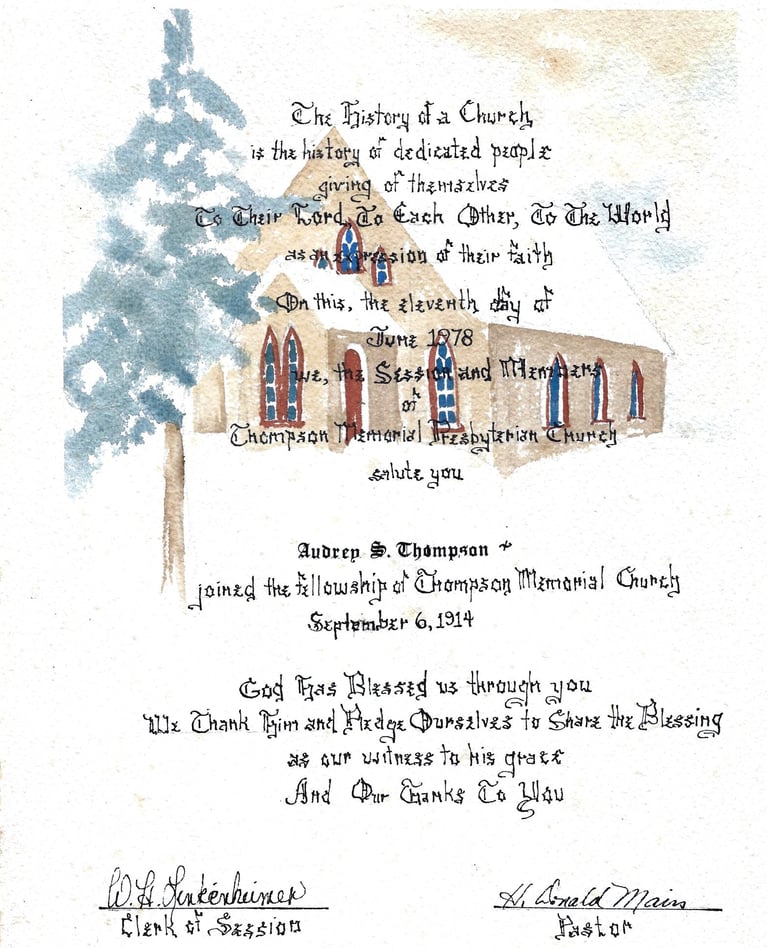 The History of a Church
is the history of dedicated people
giving of themselves
To Their Lord, To Each Other, To The World
as an expression of their faith
On this, the eleventh day of
June 1978
we, the Session and Members
of
Thompson Memorial Presbyterian Church
salute you
Audrey S. Thompson
joined the fellowship of Thompson Memorial Church
September 6, 1914
God Has Blessed us through you
We Thank Him and Pledge Ourselves to Share the Blessing
as our witness to his grace
And Our Thanks To You
W. H. Linkenheimer H. Donald Mains
Clerk of Session Pastor